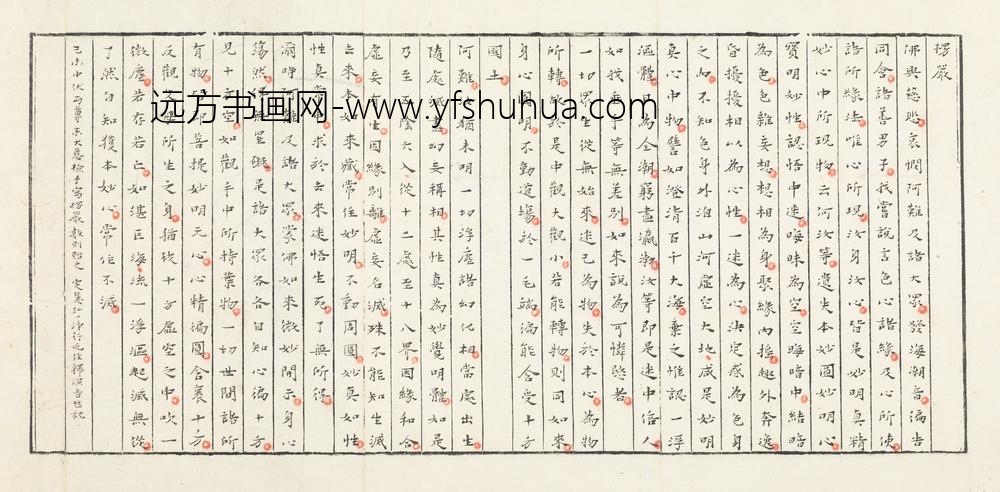 楞嚴
佛興慈悲哀愍阿難及諸大眾發海潮音徧告
同會諸善男子我嘗說言色心諸緣及心所使
諸所緣法唯心所現汝身汝心皆是妙明真精
妙心中所現物云何汝等遺失本妙圓妙明心
寶明妙性認悟中迷晦昧為空空晦暗中結暗
為色色雜妄想想相為身聚緣內搖趣外奔逸
昏擾擾相以為心性一迷為心決定惑為色身
之內不知色身外洎山河虛空大地咸是妙明
真心中物譬如澄清百千大海棄之惟認一浮
漚體目為全潮窮盡瀛渤汝等即是迷中倍人
如我垂手等無差別如來說為可憐愍者
一切眾生從無始來迷己為物失於本心為物
所轉故於是中觀大觀小若能轉物則同如來
身心圓明不動道場於一毛端徧能含受十方
國土
阿難汝猶未明一切浮塵諸幻化相當處出生
隨處滅盡幻妄稱相其性真為妙覺明體如是
乃至五陰六入從十二處至十八界因緣和合
虛妄有生因緣別離虛妄名滅殊不能知生滅
去來本如來藏常住妙明不動周圓妙真如性
性真常中求於去來迷悟生死了無所得
爾時阿難及諸大眾蒙佛如來微妙開示身心
蕩然得無罣礙是諸大眾各各自知心徧十方
見十方空如觀手中所持葉物一切世間諸所
有物皆即菩提妙明元心心精徧圓含裹十方
反觀父母所生之身猶彼十方虛空之中吹一
微塵若存若亡如湛巨海流一浮漚起滅無從
了然自知獲本妙心常住不滅
己未中伏雨尊來大慈檢手寫楞嚴數則貽之 定慧 淨行近住釋演音並記
远方书画网-www.yfshuhua.com